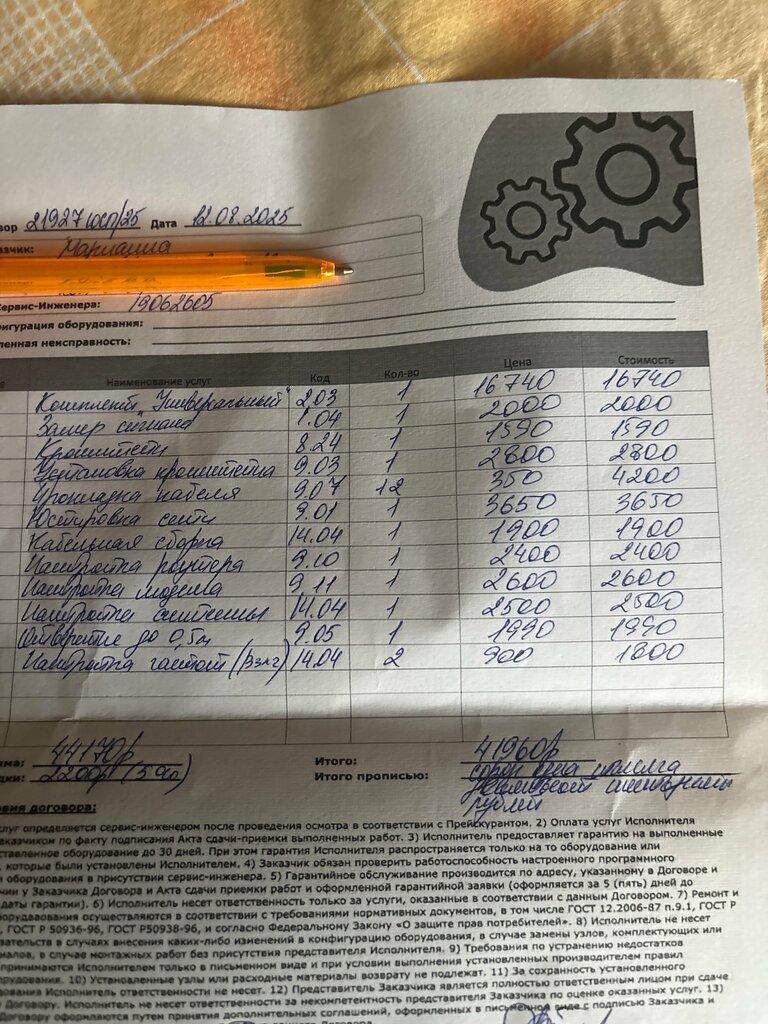 вор 21927 юсп/25 Дата 12.08.2025
азчик:
Сервис-Инженера: 19062605
фигурация оборудования:
ленная неисправность:
Наименование услуг Код Кол-во Цена Стоимость
Комплект "Универсальный" 2.03 1 16740 16740
Замер сигнала 1.04 1 2000 2000
Кронштейн 8.24 1 1590 1590
Установка кронштейна 9.03 1 2800 2800
Прокладка кабеля 9.07 12 350 4200
Юстировка сети 9.01 1 3650 3650
Кабельная сборка 14.04 1 1900 1900
Настройка роутера 9.10 1 2400 2400
Настройка модема 9.11 1 2600 2600
Настройка системы 14.04 1 2500 2500
Отверстие до 0,5м 9.05 1 1990 1990
Настройка частот 14.04 2 900 1800
ма: 44170р Итого: 41960р
дки: 2200р (5%) Итого прописью: сорок одна тысяча
девятьсот шестьдесят
рублей
овия договора:
слуг определяется сервис-инженером после проведения осмотра в соответствии с Прейскурантом. 2) Оплата услуг Исполнителя
аказчиком по факту подписания Акта сдачи-приемки выполненных работ. 3) Исполнитель предоставляет гарантию на выполненные
ставленное оборудование до 30 дней. При этом гарантия Исполнителя распространяется только на то оборудование или
, которые были установлены Исполнителем. 4) Заказчик обязан проверить работоспособность настроенного программного
оборудования в присутствии сервис-инженера. 5) Гарантийное обслуживание производится по адресу, указанному в Договоре и
чии у Заказчика Договора и Акта сдачи приемки работ и оформленной гарантийной заявки (оформляется за 5 (пять) дней до
даты гарантии). 6) Исполнитель несет ответственность только за услуги, оказанные в соответствии с данным Договором. 7) Ремонт и
борудования осуществляются в соответствии с требованиями нормативных документов, в том числе ГОСТ 12.2006-87 п.9.1, ГОСТ Р
, ГОСТ Р 50936-96, ГОСТ Р50938-96, и согласно Федеральному Закону «О защите прав потребителей». 8) Исполнитель не несет
зательств в случаях внесения каких-либо изменений в конфигурацию оборудования, в случае замены узлов, комплектующих или
иалов, в случае монтажных работ без присутствия представителя Исполнителя. 9) Требования по устранению недостатков
принимаются Исполнителем только в письменном виде и при условии выполнения установленных производителем правил
орудования. 10) Установленные узлы или расходные материалы возврату не подлежат. 11) За сохранность установленного
дования Исполнитель ответственности не несет. 12) Представитель Заказчика является полностью ответственным лицом при сдаче
Договору. Исполнитель не несет ответственности за некомпетентность представителя Заказчика по оценке оказанных услуг. 13)
Договору оформляются путем принятия дополнительных соглашений, оформленных в письменной виде с подписью Заказчика и